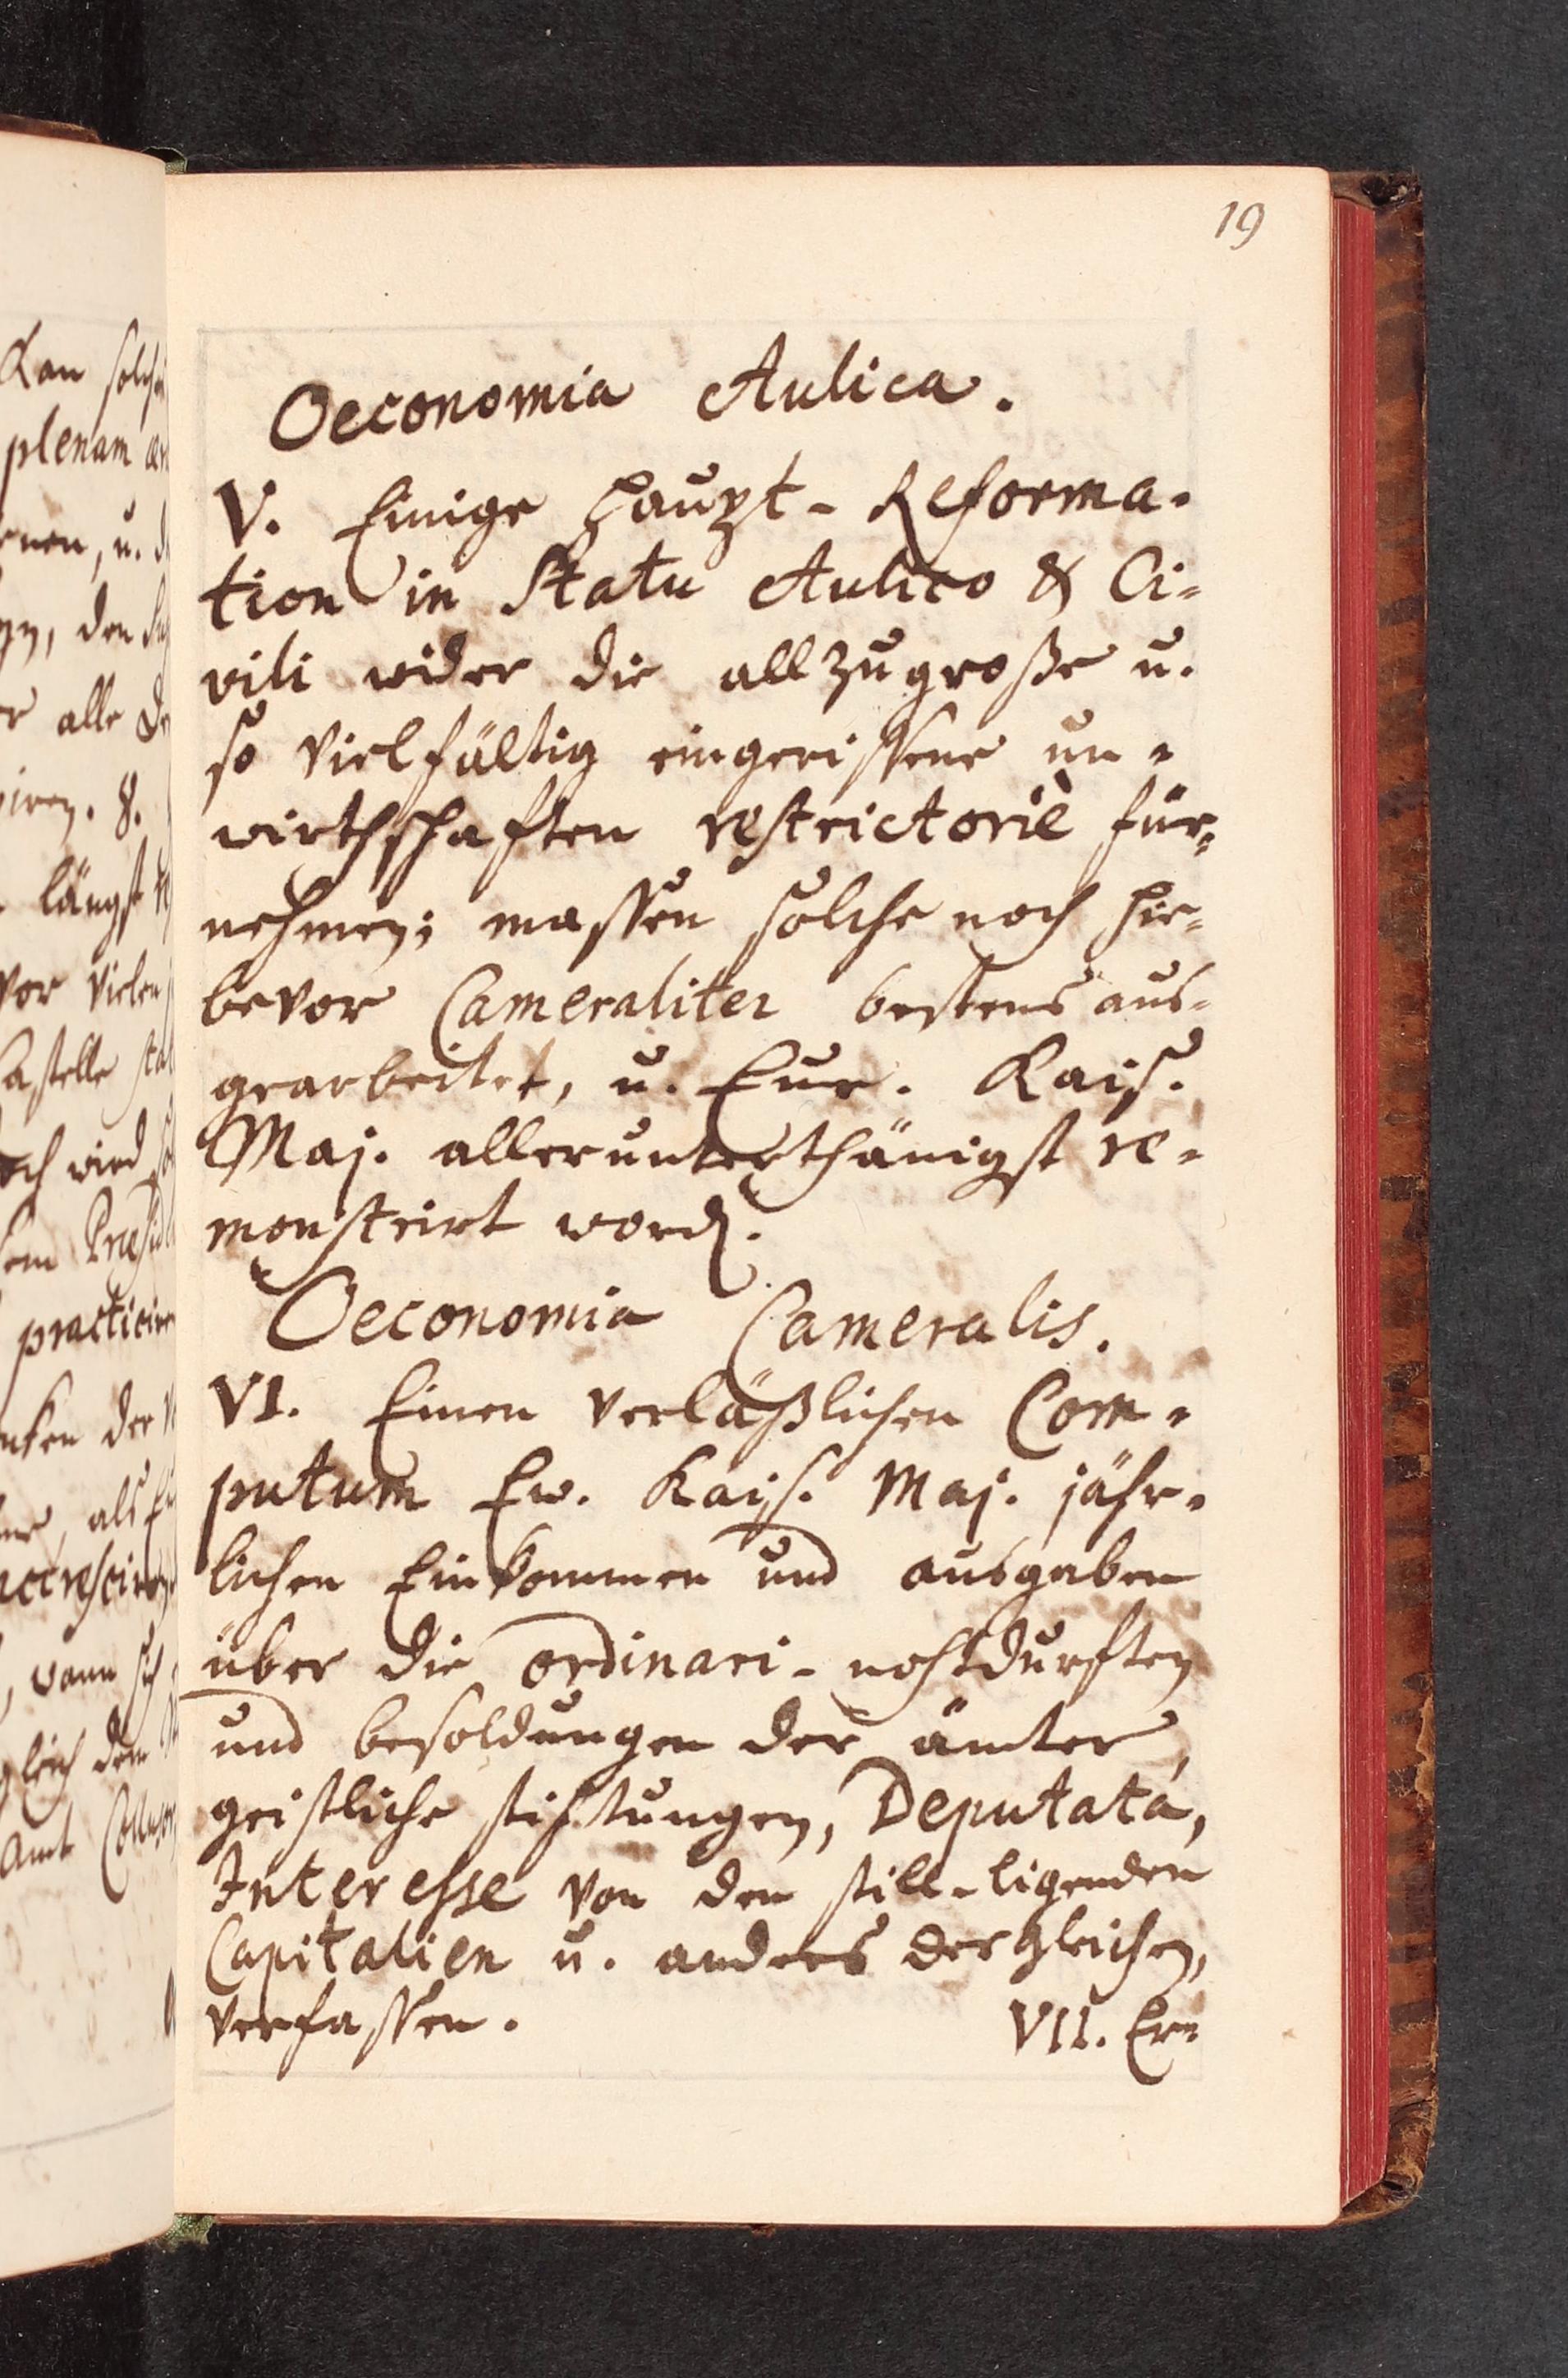 19
Oeconomia Aulica.
V. Einige haupt-Reforma-
tion in Statu Aulico & Ci-
vili wider die allzugroße u.
so vielfältig eingerissene un-
wirthschaften restrictoriè für-
nehmen; massen solche noch hie-
bevor Cameraliter bestens aus-
gearbeitet, u. Eur. Kais.
Maj. allerunterthänigst re-
monstrirt word.
Oeconomia Cameralis.
VI. Einen verläßlichen Com-
putum Ew. Kais. Maj. jähr-
lichen Einkommen und ausgaben
über die ordinari-nohtdurften
und besoldungen der ämter,
geistliche stiftungen, Deputata,
Interesse von den still-ligenden
Capitalien u. anders dergleichen,
verfassen.
VII. Er-
Kan
plenam
u.
den
alle
längst
vor vielen
wird
practicir
der
als
wann sich
Amt